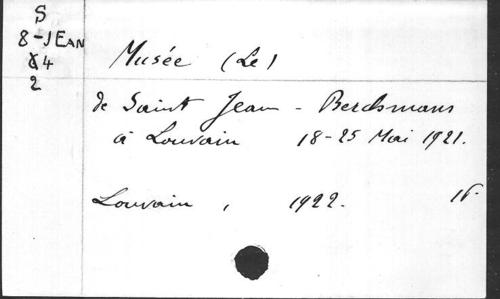 S
8-JEAN
4
2
Musée (Le)
de Saint Jean - Berchmans
à Louvain 18-25 Mai 1921.
Louvain, 1922.